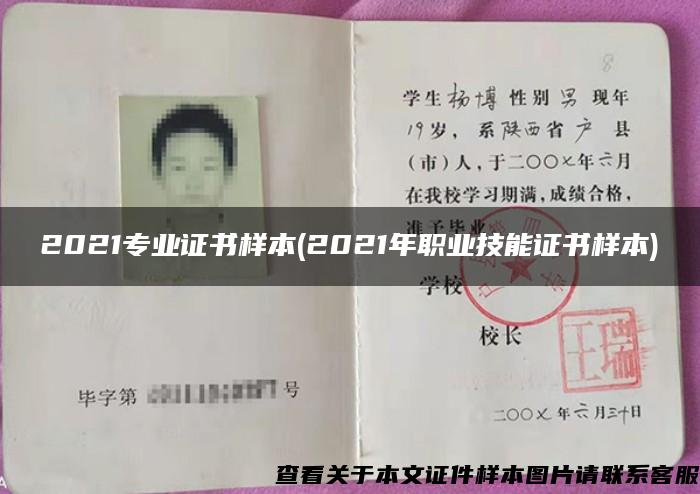 8
学生杨博性别男现年
19岁，系陕西省户县
(市)人,于二〇〇七年六月
在我校学习期满,成绩合格,
准予毕业
2021专业证书样本(2021年职业技能证书样本)
学校
校长
毕字第
号
二〇〇七年六月三十日
查看关于本文证件样本图片请联系客服